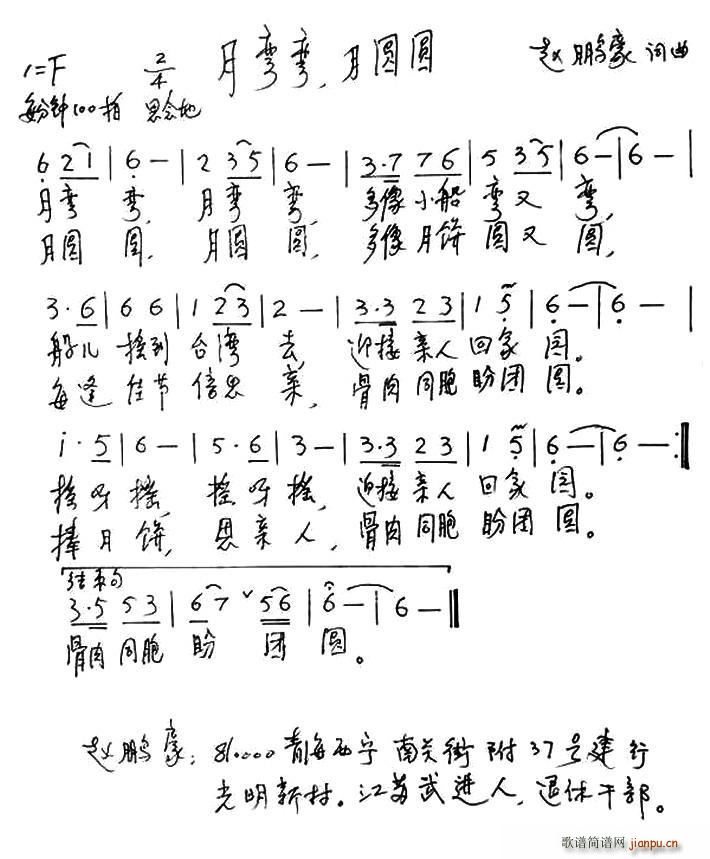 月弯弯，月圆圆
赵鹏豪 词曲
1=F 2/4
每分钟100拍 思念地
6 2 1 | 6 — | 2 3 5 | 6 — | 3·7 7 6 | 5 3 5 | 6 — | 6 — |
月弯 弯，月弯 弯，多像小船 弯又 弯，
月圆 圆，月圆 圆，多像月饼 圆又 圆，
3·6 | 6 6 | 1 2 3 | 2 — | 3·3 2 3 | 1 5 | 6 — | 6 — |
船儿 摇到 台湾 去，迎接 亲人 回家 园。
每逢 佳节 倍思 亲，骨肉 同胞 盼团 圆。
i·5 | 6 — | 5·6 | 3 — | 3·3 2 3 | 1 5 | 6 — | 6 — :‖
摇呀 摇，摇呀 摇，迎接 亲人 回家 园。
捧月 饼，思亲 人，骨肉 同胞 盼团 圆。
结束句
3·5 5 3 | 6 7 ˅ 5 6 | 6 — | 6 — ‖
骨肉 同胞 盼 团 圆。
赵鹏豪：810000 青海西宁 南关街 附37号建行
光明新村。江苏武进人，退休干部。
歌谱简谱网
jianpu.cn